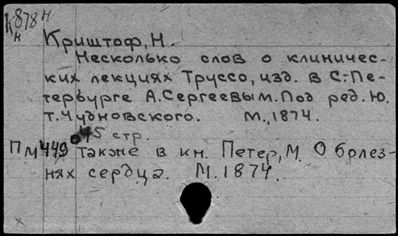 К878
н
Криштоф, Н.
Несколько слов о клиничес-
ких лекциях Труссо, изд. в С.-Пе-
тербурге А.Сергеевым. Под ред. Ю.
Т. Чудновского. М., 1874.
45 стр.
Пм449 Также в кн. Петер, М. О болез-
нях сердца. М. 1874.